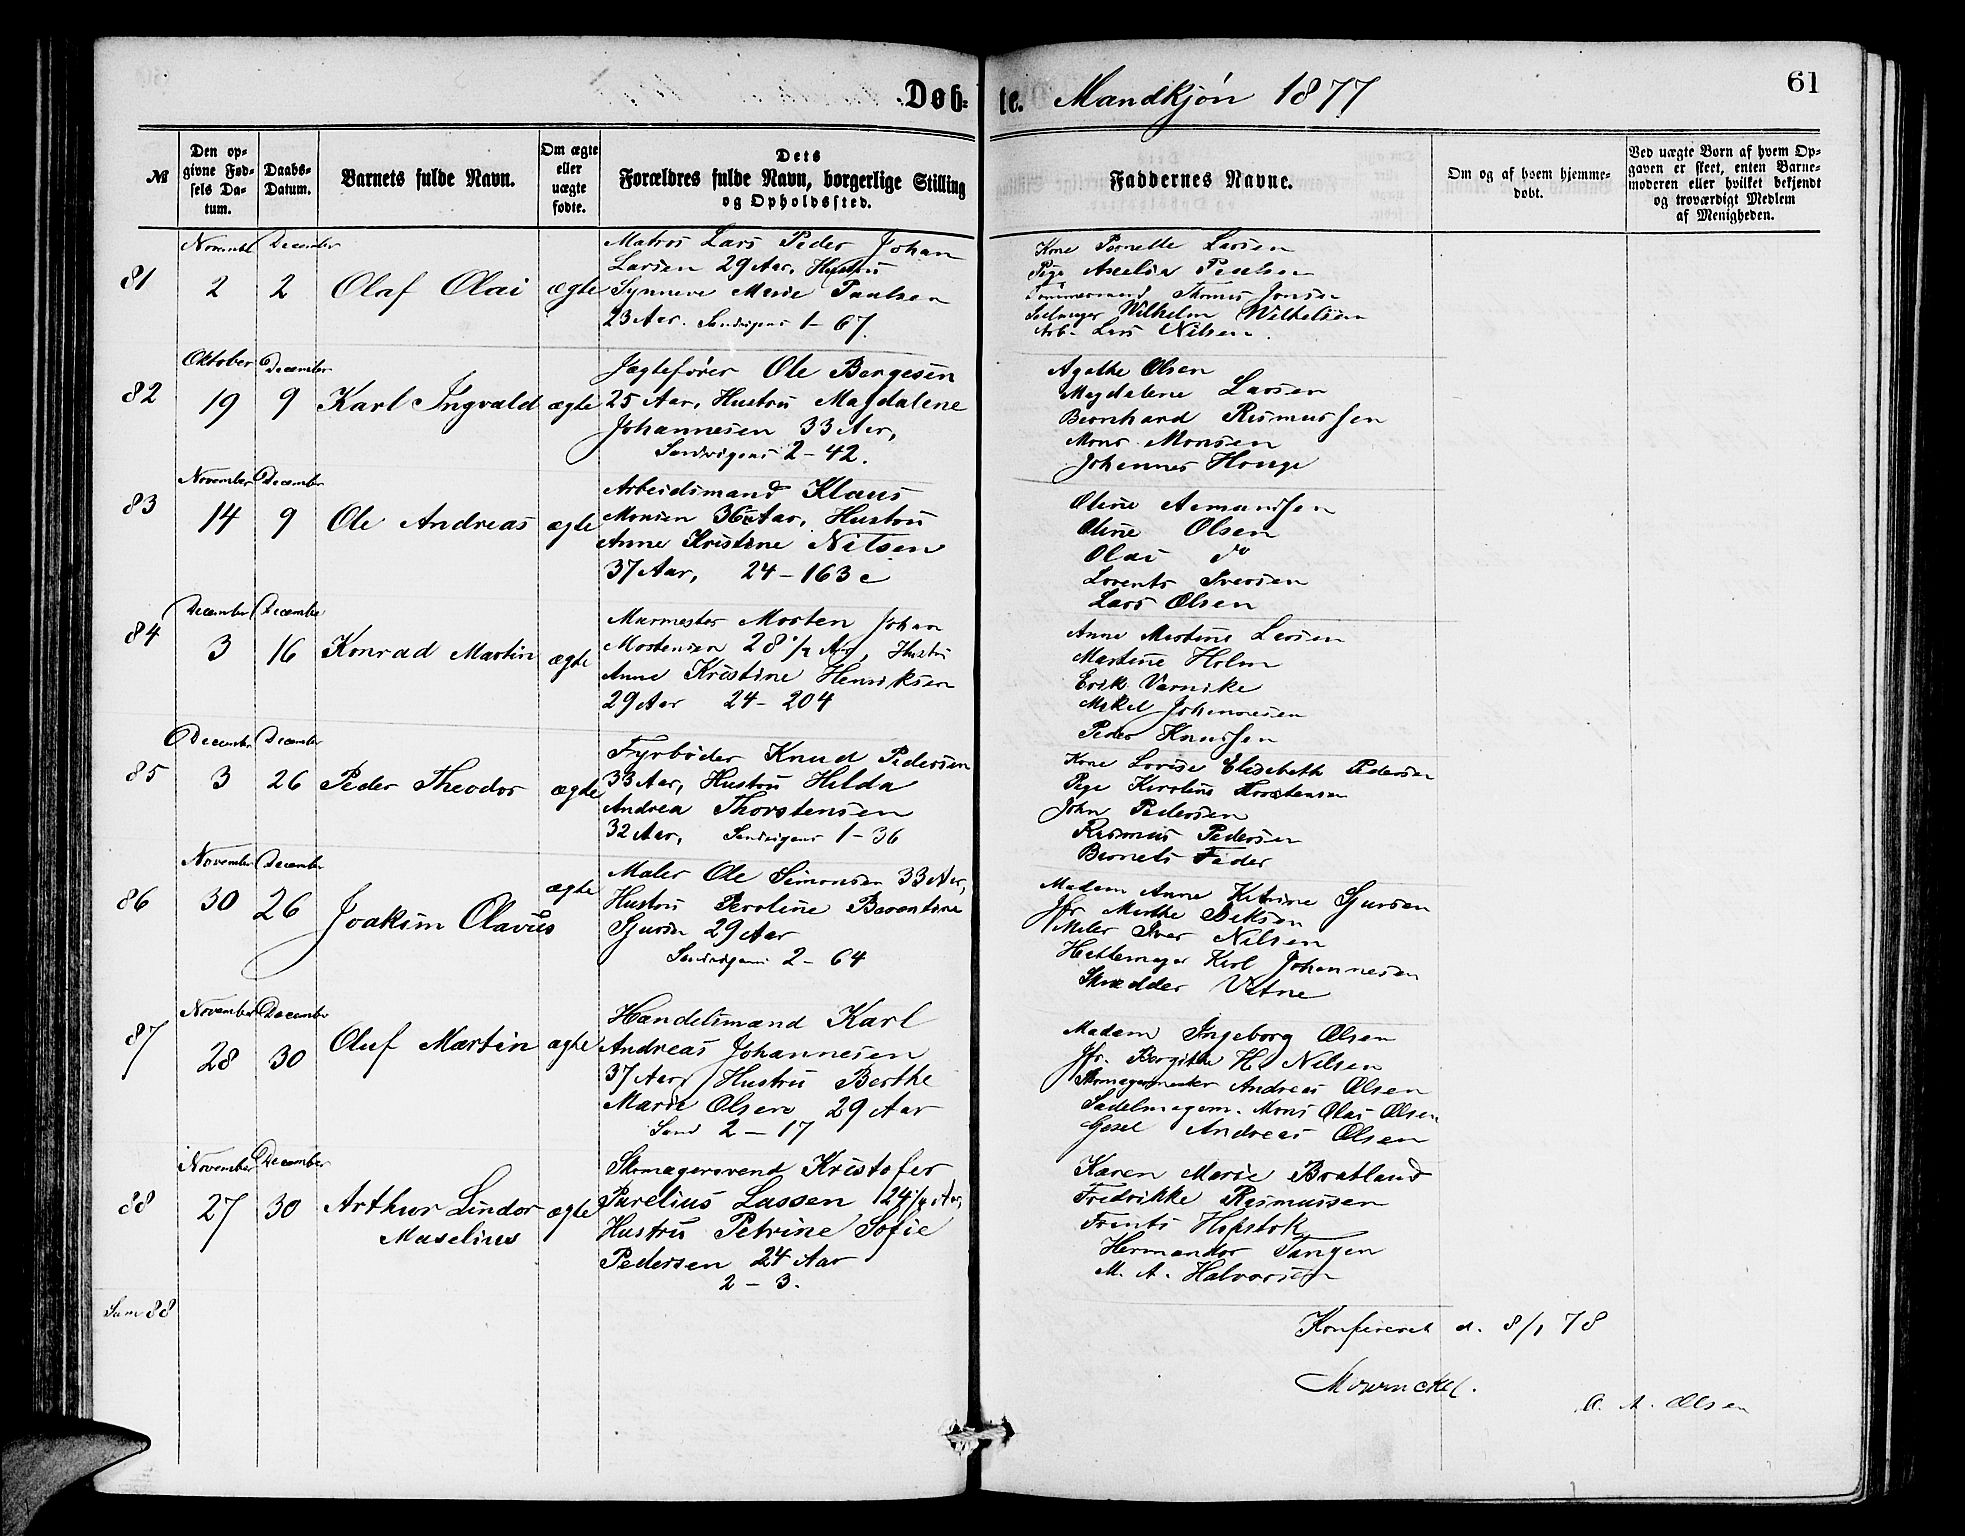 Døb-te. Mandkjøn 1877
61
№
Den op-
givne Fød-
sels Da-
tum.
Daabs-
Datum.
Barnets fulde Navn.
Om ægte
eller
uægte
fødte.
Dets
Forældres fulde Navn, borgerlige Stilling
og Opholdssted.
Faddernes Navne.
Om og af hvem hjemme-
døbt.
Ved uægte Børn af hvem Op-
gaven er skeet, enten Barne-
moderen eller hvilket bekjendt
og troværdigt Medlem
af Menigheden.
81
November
2
December
2
Olaf Olai
ægte
Matros Lars Peder Johan
Larsen 29 Aar, Hustru
Synneve Marie Paulsen
23 Aar. Sandvigens 1 - 67.
Kone Pernelle Larsen
Pige Amelia Paulsen
Tømmermand Thomas Jonsen
Wilhelm Wilhelsen
Arb. Lars Nilsen.
82
Oktober
19
December
9
Karl Ingvald
ægte
Jægtefører Ole Børgesen
25 Aar, Hustru Magdalene
Johannesen 33 Aar,
Sandvigens 2 - 42.
Agathe Olsen
Magdalene Larsen
Bernhard Rasmussen
Mons Monsen
Johannes Hauge
83
November
14
December
9
Ole Andreas
ægte
Arbeidsmand Klaus
Monsen 36 Aar, Hustru
Anne Kristine Nilsen
37 Aar, 24 - 163 c
Oline Amundsen
Oline Olsen
Olai do
Lorents Iversen
Lars Olsen
84
December
3
December
16
Konrad Martin
ægte
Murmester Morten Johan
Mortensen 28 1/2 Aar, Hustru
Anne Kristine Henriksen
29 Aar 24 - 204
Anne Martine Larsen
Martine Holm
Erik Varnike
Mikel Johannesen
Peder Knudsen
85
December
3
December
26
Peder Theodor
ægte
Fyrbøder Knud Pedersen
33 Aar, Hustru Hilda
Andrea Thorstensen
32 Aar, Sandvigens 1 - 36
Kone Lovise Elisebeth Pedersen
Pige Karoline Torstensen
John Pedersen
Rasmus Pedersen
Bernets Feder
86
November
30
December
26
Joakim Olavus
ægte
Maler Ole Simonsen 33 Aar,
Hustru Peroline Berentine
Sjursen 29 Aar
Sandvigens 2 - 64
Madam Anne Katrine Sjursen
Jfr. Marthe Beksen
Maler Iver Nilsen
Hattemager Karl Johannesen
Skrædder Vatne
87
November
28
December
30
Oluf Martin
ægte
Handelsmand Karl
Andreas Johannesen
37 Aar, Hustru Berthe
Marie Olsen 29 Aar
Sand 2 - 17
Madam Ingeborg Olsen
Jfr. Bergithe H. Nilsen
Skomagermester Andreas Olsen
Sadelmagerm. Mons Olai Olsen
Gesel Andreas Olsen
88
November
27
December
30
Arthur Lindor
Maselius
ægte
Skomagersvend Kristofer
Parelius Lassen 24 1/2 Aar,
Hustru Petrine Sofie
Pedersen 24 Aar
2 - 3.
Karen Marie Bratland
Fredrikke Rasmussen
Frents Hopstok
Hermandor Tangen
M. A. Halvorsen
Sum 88
Konfereret d. 8/1 78
Mowinckel.
O. A. Olsen